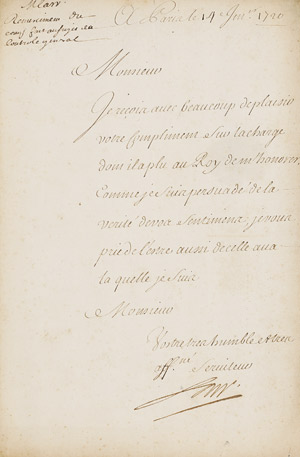 M Law
Remerciement du
compliment au sujet du
Controle general
A Paris le 14 Jan.er 1720
Monsieur
Je reçois avec beaucoup de plaisir
votre compliment sur la charge
dont il a plu au Roy de m'honorer,
Comme je suis persuadé de la
verité de vos sentimens, je vous
prie de l'estre aussi de celle avec
la quelle je suis
Monsieur
Vostre tres humble et tres
aff.né Serviteur
Law